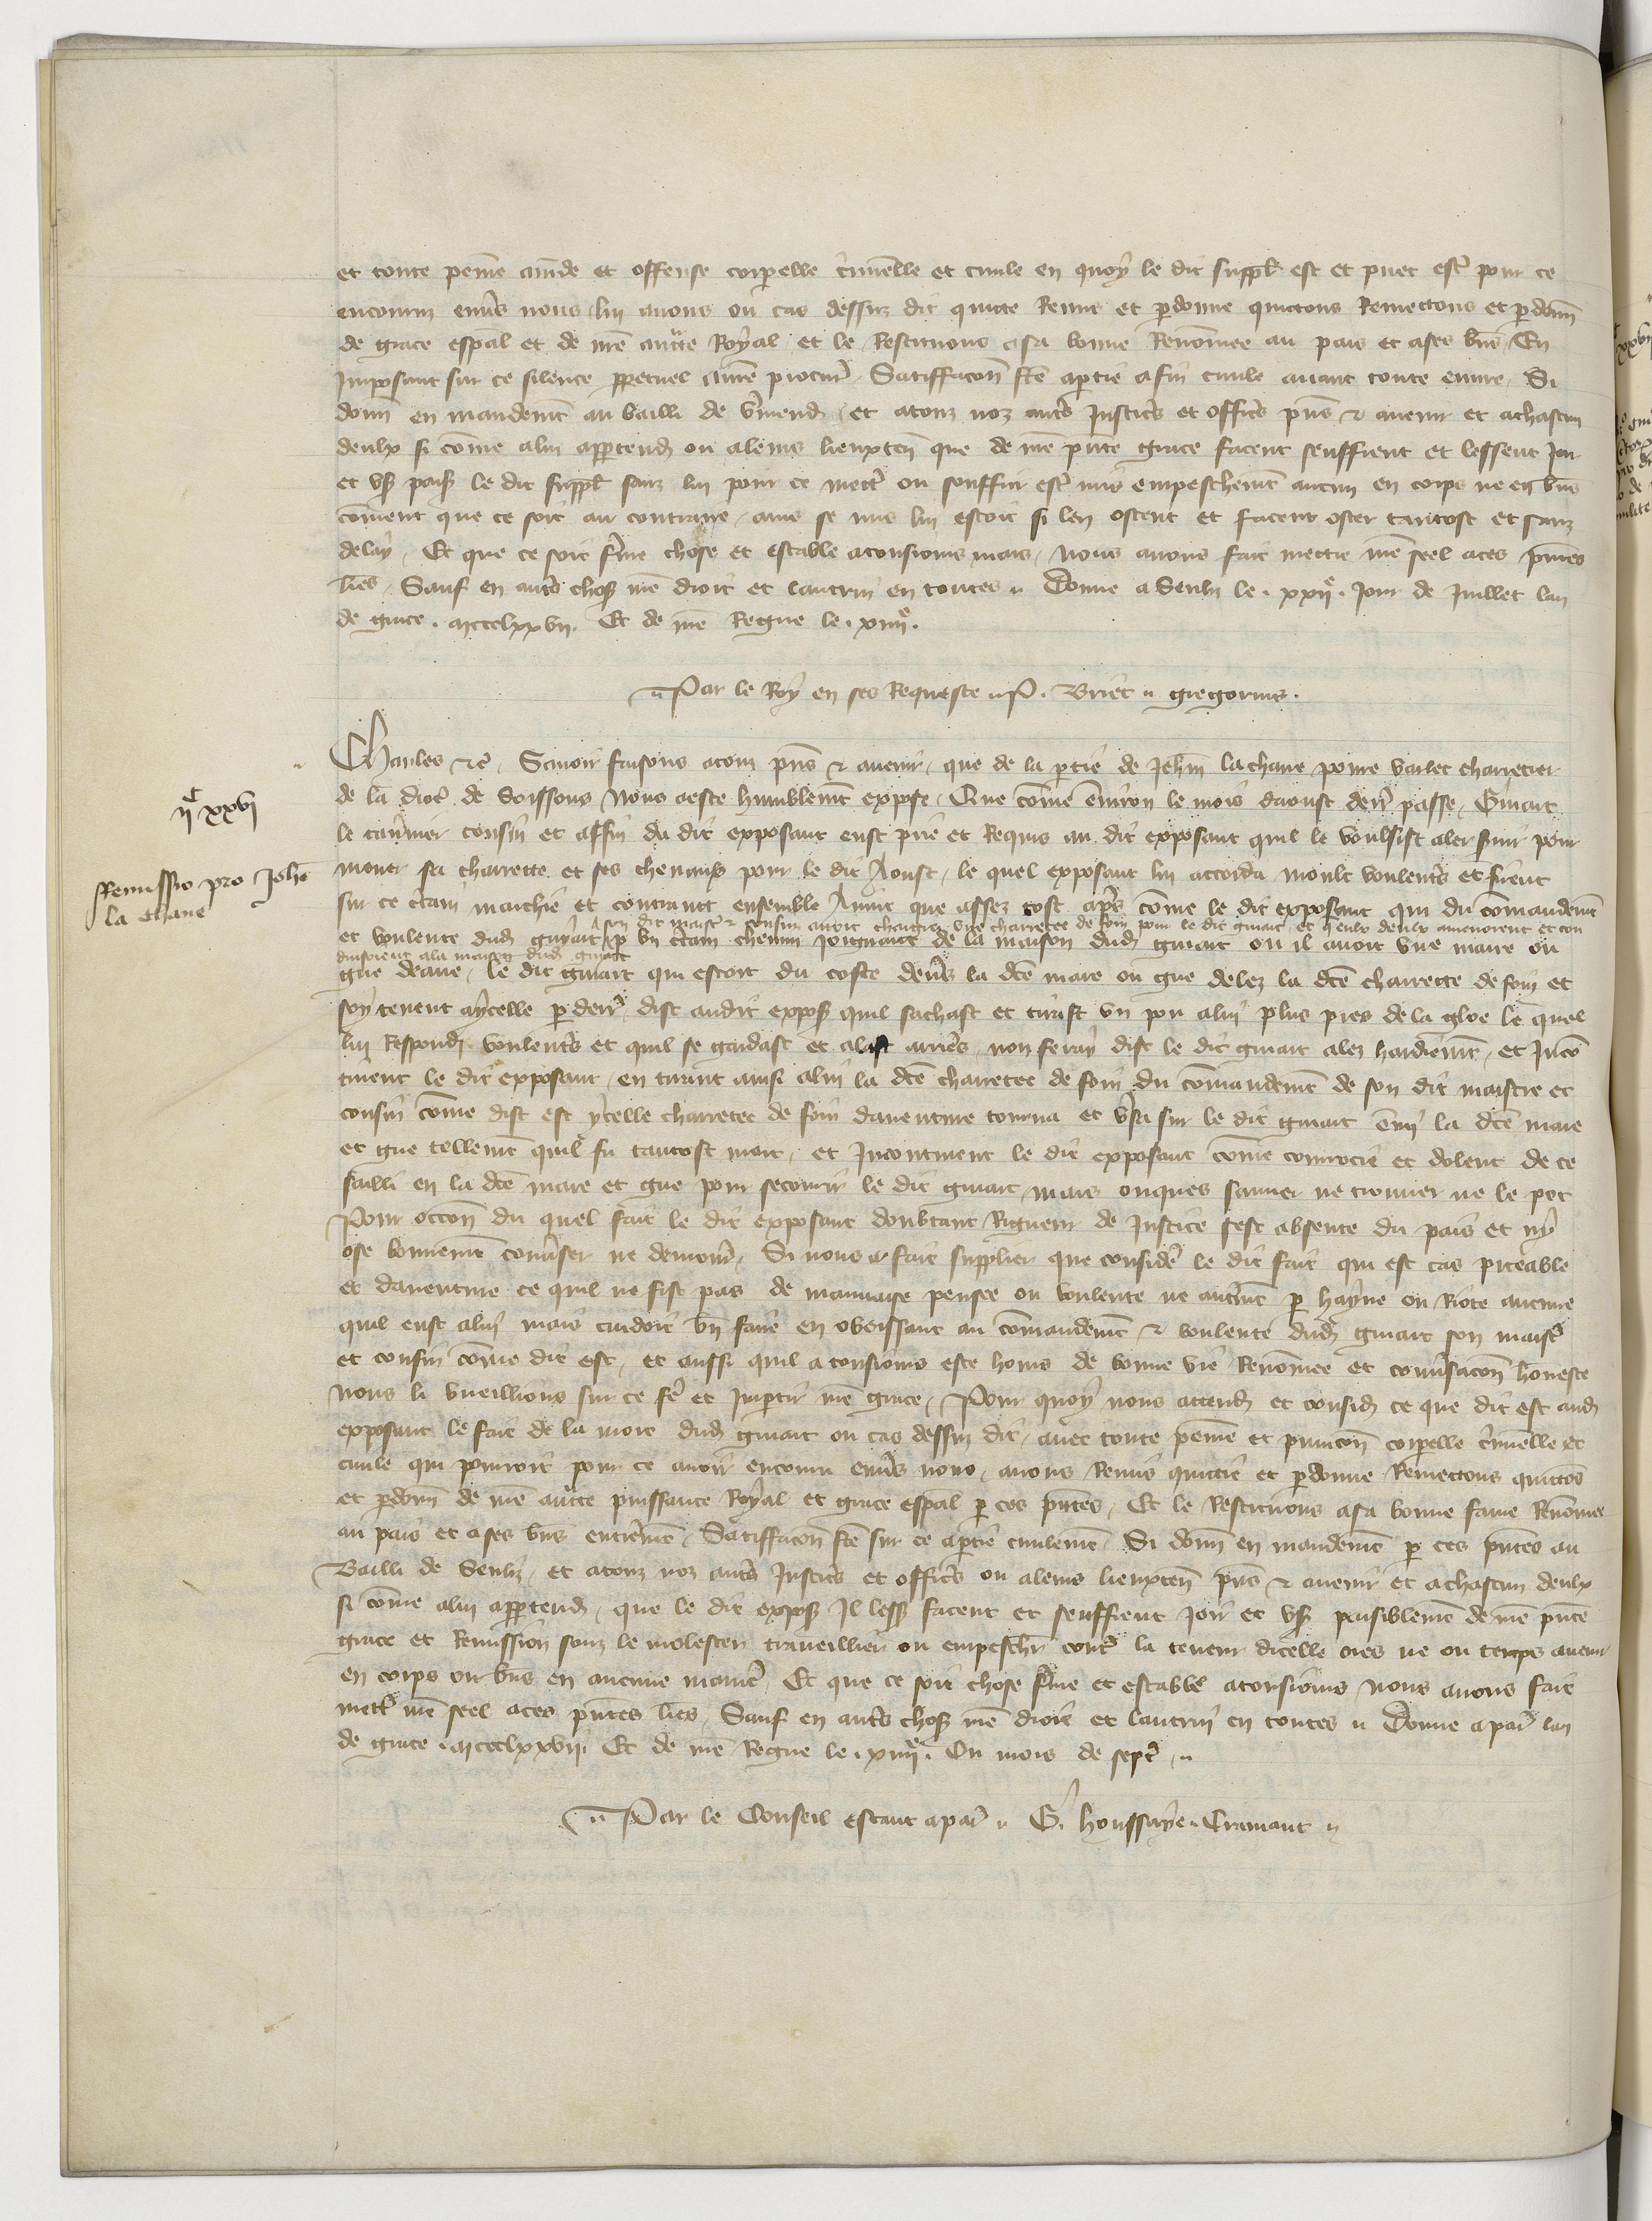 et toute peine amde et offense corporelle c'minelle et civile en quoy le dit suppl' est et puet est' pour ce
encouru env's nous / lui avons ou cas dessuz dit quicte Remis et p'donne quictons Remectons et p'donn
de grace esp'al et de nre auctte Royal et le Restituons a sa bonne Renomee au pais et a ses biens / En
Imposant sur ce silence p'petuel a nre procur' Satiffacon fte a p'tie a fin civile avant toute euvre / Si
donn en mandemt au bailli de V'mend' / et a touz noz aut's Justic's et offic's p'ns & avenir et a chascun
deulx si come a lui app'tend' ou a leurs lieuxten' que de nre p'nte grace facent seuffrent et lessent Joir
et us' pais' le dit suppl' sanz lui pour ce mect' ou souffrir est' mis empeschemt aucun en corps ne en biens
coment que ce soit au contraire / ains se mis lui estoit si len ostent et facent oster tantost et sanz
delay / Et que ce soit f'me chose et estable a tousiours mais / Nous avons fait mectre nre seel a ces p'ntes
l'res / Sauf en aut's chos' nre droit et lautrui en toutes // Donne a Senliz le . xxiie . Jour de Juillet lan
de grace . mccclxxvii. Et de nre Regne le . xiiiie .
// Par le Roy en ses Requeste // P. Briet // gregorius .
Charles &c' / Savoir faisons a touz p'ns & avenir / que de la p'tie de Jehan la chane povre varlet charretier
iic xxvi
de la dioc' de Soissons Nous a este humblemt expose / Que come environ le mois daoust derr' passe / Guiart
le cousin et affin du dit exposant eust prie et Requis au dit exposant quil le voulsist aler servir pour
Remissio pro Jehe
la chane
mener sa charrette et ses chevaux pour le dit Aoust / le quel exposant lui accorda moult voulent's et firent
sur ce c'tain marchie et contrauct ensemble Avint que assez tost ap's come le dit exposant qui du comandemt
son dit maist' & cousin avoit chargie une charretee de foin pour le dit guiart, et q eulx deulx amenoient et con
et voulente dud' guyart p' un c'tain chemin Joignant de la maison dud' guiart ou il avoit une mare ou
duisoient a la maison dud' guiart
gue deaue / le dit guiart qui estoit du coste dev's la dte mare ou gue delez la dte charrette de foin et
soy tenent a ycelle p' derr' dist au dit expos' quil sachast et tirast un pou a lui plus pres de la le quel
lui Respond' voulent's et quil se gardast et alast arrier's / non feray dist le dit guiart alez hardiemt / et Inco
tinent le dit exposant / en tirant ainsi a lui la dte charretee de foin du comandemt de son dit maistre et
cousin come dist est ycelle charretee de foin daventure tourna et v'sa sur le dit guiart emy la dte mare
et gue tellemt quil fu tantost mort / et Incontinent le dit exposant come courrocie et dolent de ce
sailli en la dte mare et gue pour secourir le dit guiart mais onques sauver ne trouver ne le pot
Pour occon du quel fait le dit exposant doubtant Rigueur de Justice sest absente du pais et ny
ose bonnemt conv'ser ne demour' / Si nous a fait supplier que consider' le dit fait qui est cas piteable
et daventure ce quil ne fist pas de mauvaise pensee ou voulente ne autremt p' hayne ou Riote aucune
quil eust a lui mais cuidoit bn faire en obeissant au comandemt & voulente dud' guiart son maist'
et cousin come dit est / et aussi quil a tousiours este homs de bonne vie Renomee et conv'sacon honeste
Nous li vueillions sur ce fe' et Imp'tir nre grace / Pour quoy nous attend' et consid' ce que dit est aud'
exposant le fait de la mort dud' guiart ou cas dessuz dit / avec toute peine et punicon corporelle c'minelle et
civile qui pourroit pour ce avoir encouru env's nous / avons Remis quictie et p'donne Remectons quictons
et p'donn de nre auctte puissance Royal et grace esp'al p' ces p'ntes / Et le Restituons a sa bonne fame Renomee
au pais et a ses biens entierremt / Satiffacon fte sur ce a p'tie civilemt / Si donn en mandemt p' ces p'ntes au
Bailli de Senliz / et a touz noz aut's Justic's et offic's ou a leurs lieuxten' p'ns & avenir et a chascun deulx
si come a lui app'tend' / que le dit expos' Il less' facent et seuffrent Joir et us' paisiblemt de nre p'nte
grace et Remission sanz le molester traveillier ou empeschr cont' la teneur dicelle ores ne ou temps avenir
en corps ou biens en aucune manie' / Et que ce soit chose f'me et estable a tousiours / Nous avons fait
mett' nre seel a ces p'ntes l'res / Sauf en aut's chos' nre droit et lautrui en toutes // Donne a par' lan
de grace . mccclxxvii. Et de nre Regne le . xiiiie . Ou mois de sept' . //
// Par le Conseil estant a par' // G. houssaye . Cramant //